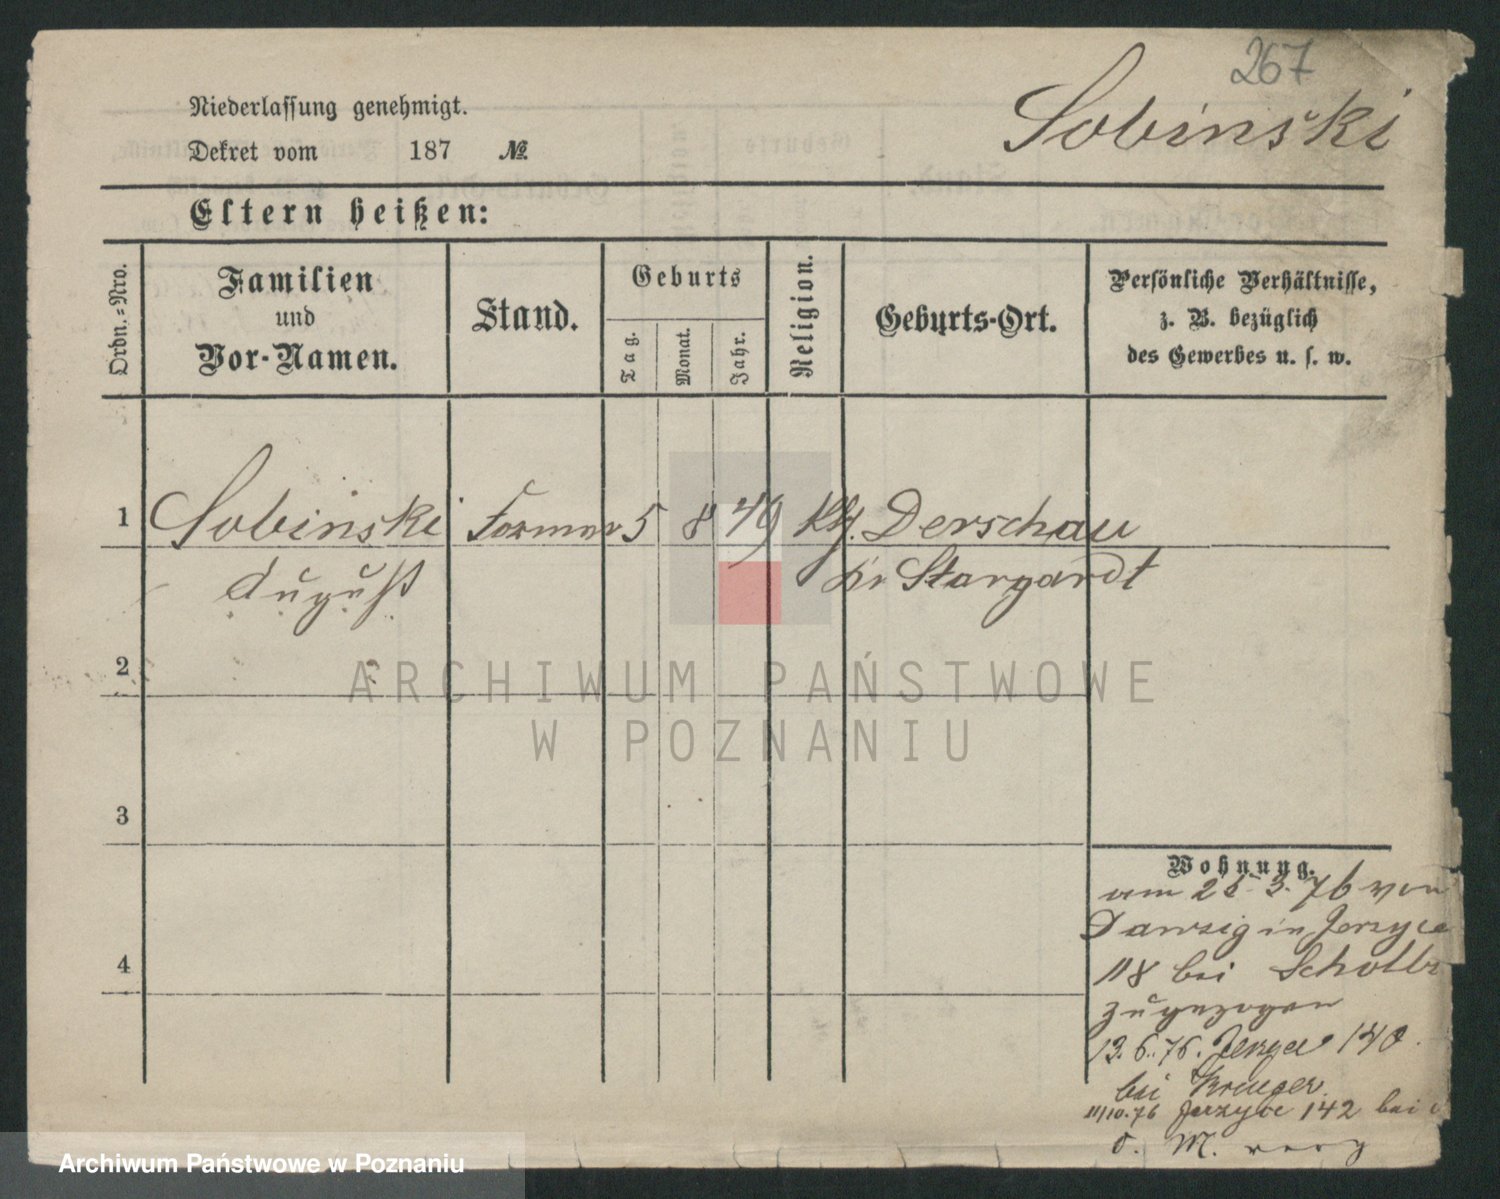 267
Sobinski
Niederlassung genehmigt.
Dekret vom 187 №
Eltern heißen:
Ordn.=Nro.
Familien
und
Vor-Namen.
Stand.
Geburts
Tag.
Monat.
Jahr.
Religion.
Geburts-Ort.
Persönliche Verhältnisse,
z. B. bezüglich
des Gewerbes u. s. w.
1 Sobinski Former 5 8 49 Kth. Derschau
August Kr Stargardt
2
3
4
Wohnung.
am 25. 3. 76 von
Danzig in Jerzyce
118 bei
zugezogen
13. 6. 76. Jerzyce 140.
bei Krueger
11/10. 76 Jerzyce 142 bei
d. M.
ARCHIWUM PAŃSTWOWE
W POZNANIU
Archiwum Państwowe w Poznaniu